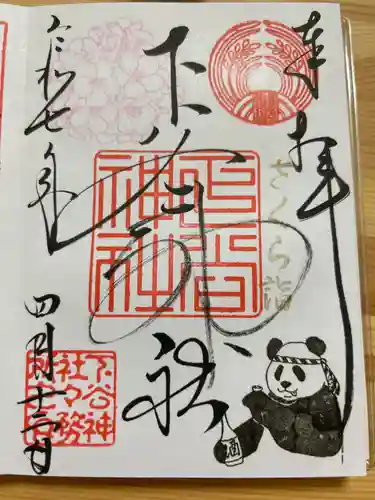 奉拝
さくら詣
下谷神社
下谷神社
令和七年
四月十二日
下谷神
社々務
所之印
酒